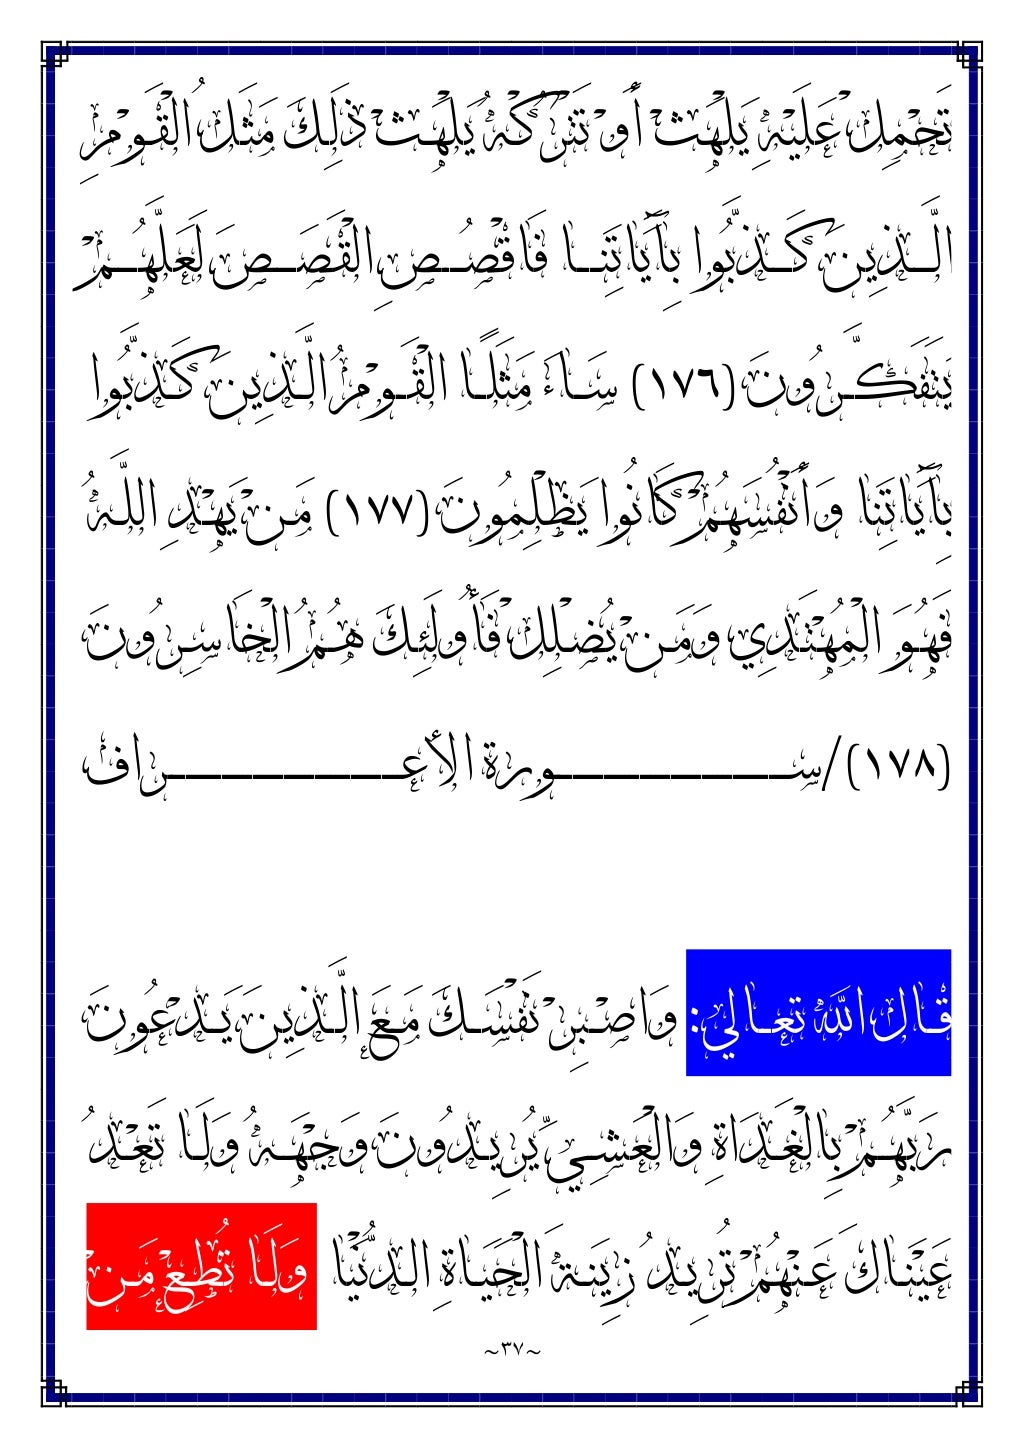 تَحْمِلْ عَلَيْهِ يَلْهَثْ أَوْ تَتْرُكْهُ يَلْهَثْ ذَلِكَ مَثَلُ الْقَوْمِ
الَّذِينَ كَذَّبُوا بِآَيَاتِنَا فَاقْصُصِ الْقَصَصَ لَعَلَّهُمْ
يَتَفَكَّرُونَ (١٧٦) سَاءَ مَثَلًا الْقَوْمُ الَّذِينَ كَذَّبُوا
بِآَيَاتِنَا وَأَنْفُسَهُمْ كَانُوا يَظْلِمُونَ (١٧٧) مَنْ يَهْدِ اللَّهُ
فَهُوَ الْمُهْتَدِي وَمَنْ يُضْلِلْ فَأُولَئِكَ هُمُ الْخَاسِرُونَ
(١٧٨) /ســـــورة الأعـــــراف
قال الله تعالي: وَاصْبِرْ نَفْسَكَ مَعَ الَّذِينَ يَدْعُونَ
رَبَّهُمْ بِالْغَدَاةِ وَالْعَشِيِّ يُرِيدُونَ وَجْهَهُ وَلَا تَعْدُ
عَيْنَاكَ عَنْهُمْ تُرِيدُ زِينَةَ الْحَيَاةِ الدُّنْيَا وَلَا تُطِعْ مَنْ
~٣٧~